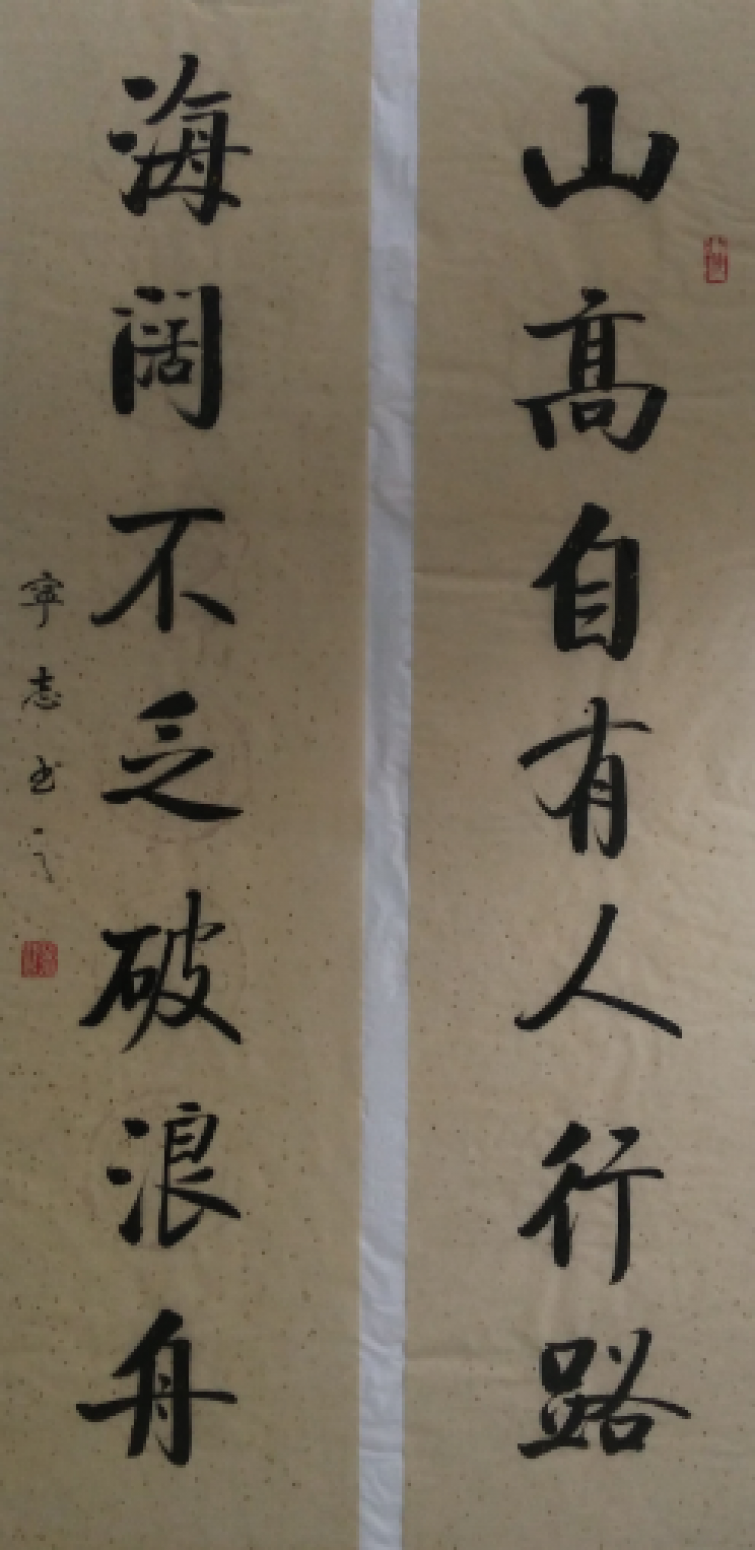 山高自有人行路
海阔不乏破浪舟
宁志书